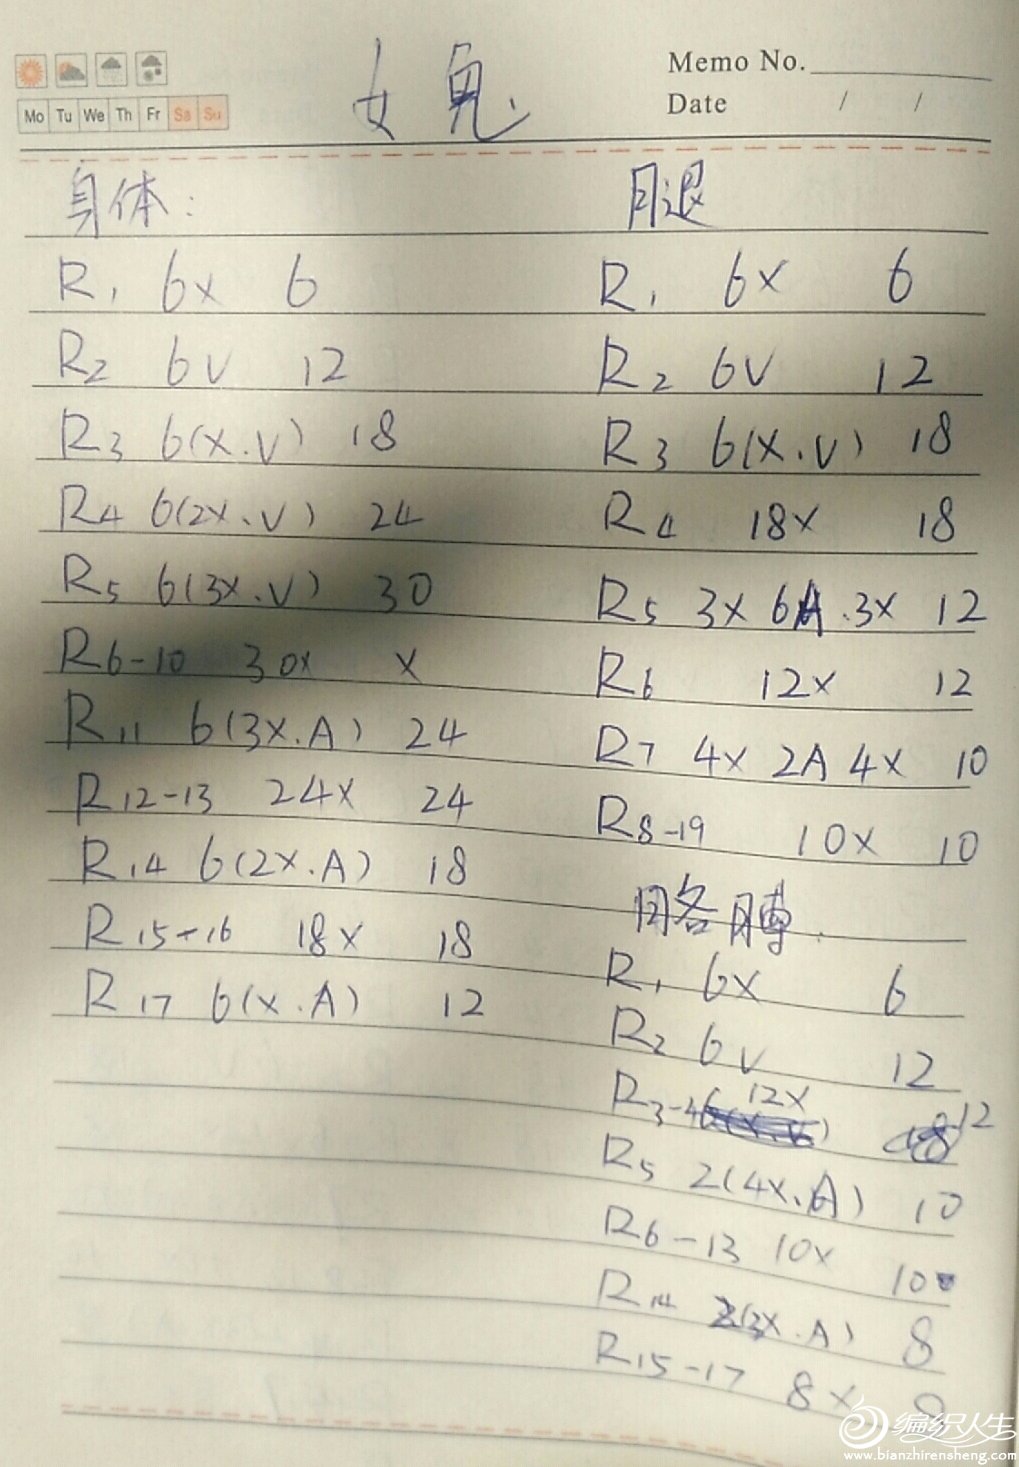 Memo No.
女鬼
Date / /
Mo Tu We Th Fr Sa Su
身体:
R1 6x 6
R2 6V 12
R3 6(x.V) 18
R4 6(2x.V) 24
R5 6(3x.V) 30
R6-10 30x x
R11 6(3x.A) 24
R12-13 24x 24
R14 6(2x.A) 18
R15-16 18x 18
R17 6(x.A) 12
腿
R1 6x 6
R2 6V 12
R3 6(x.V) 18
R4 18x 18
R5 3x 6A.3x 12
R6 12x 12
R7 4x 2A 4x 10
R8-19 10x 10
胳膊.
R1 6x 6
R2 6V 12
R3-4 12x 12
R5 2(4x.A) 10
R6-13 10x 10
R14 2(3x.A) 8
R15-17 8x 8
编织人生
www.bianzhirensheng.com